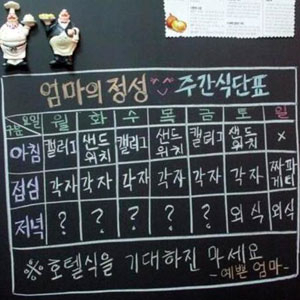 엄마의 정성 ^^ 주간식단표
구분 요일 월 화 수 목 금 토 일
아침 캘러그 샌드위치 캘러그 샌드위치 캘러그 샌드위치 X
점심 각자 각자 각자 각자 각자 각자 짜파게티
저녁 ? ? ? ? ? 외식 외식
※ 호텔식을 기대하진 마세요
-예쁜 엄마-